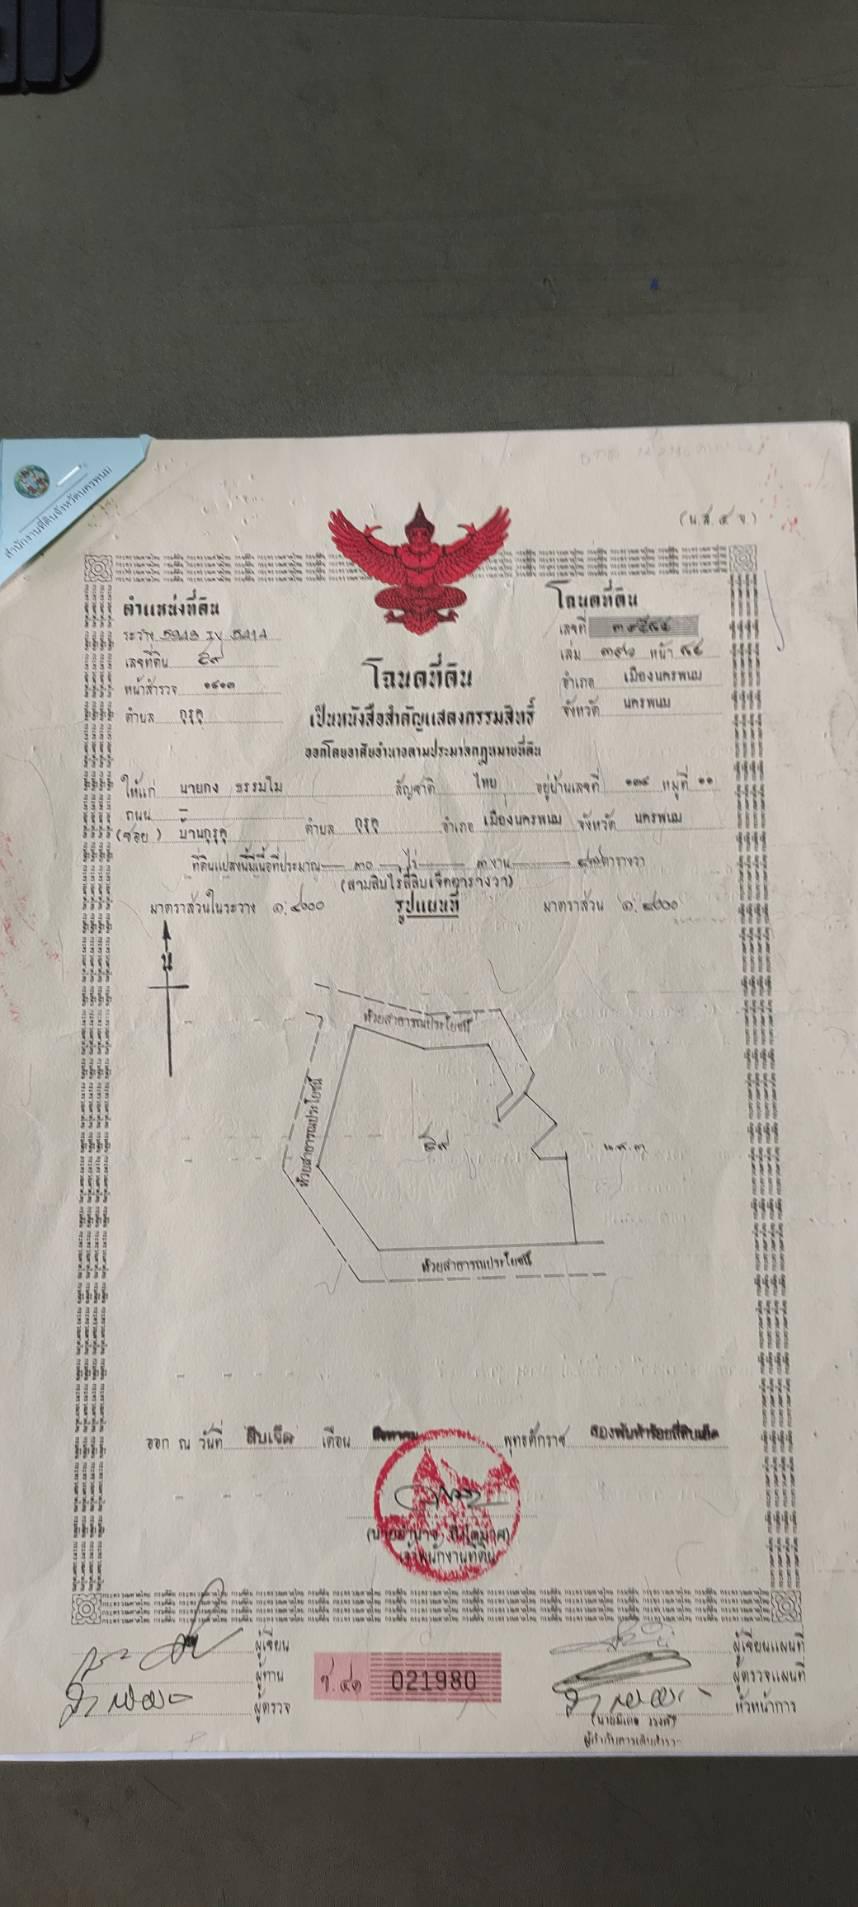 สำนักงานที่ดินจังหวัดนครพนม
(น.ส. ๔ จ)
ตำแหน่งที่ดิน
ระวาง 5943 IV 5414
เลขที่ดิน ๕๙
หน้าสำรวจ ๑๔๑๓
ตำบล กุรุคุ
โฉนดที่ดิน
เลขที่
เล่ม หน้า ๙๔
อำเภอ เมืองนครพนม
จังหวัด นครพนม
โฉนดที่ดิน
เป็นหนังสือสำคัญแสดงกรรมสิทธิ์
ออกโดยอาศัยอำนาจตามประมวลกฎหมายที่ดิน
ให้แก่ นายกง ธรรมไม สัญชาติ ไทย อยู่บ้านเลขที่ ๑๓๙ หมู่ที่ ๑๑
ถนน –
(ซอย) บ้านกุรุคุ ตำบล กุรุคุ อำเภอ เมืองนครพนม จังหวัด นครพนม
ที่ดินแปลงนี้มีเนื้อที่ประมาณ ๓๐ ไร่ งาน ๔๗ ตารางวา
(สามสิบไร่สี่สิบเจ็ดตารางวา)
มาตราส่วนในระวาง ๑:๔๐๐๐ รูปแผนที่ มาตราส่วน ๑:๔๐๐๐
น
ห้วยสาธารณประโยชน์
ห้วยสาธารณประโยชน์
๕๙
น.ส.๓
ห้วยสาธารณประโยชน์
ออก ณ วันที่ สิบเจ็ด เดือน สิงหาคม พุทธศักราช สองพันห้าร้อยสี่สิบเอ็ด
เจ้าพนักงานที่ดิน
ผู้เขียน
ผู้ทาน
ผู้ตรวจ
021980
ผู้เขียนแผนที่
ผู้ตรวจแผนที่
หัวหน้าการ